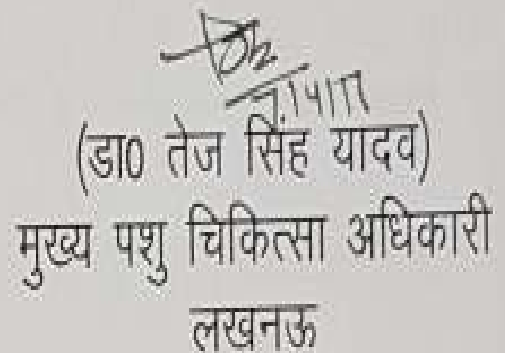 (डा0 तेज सिंह यादव)
मुख्य पशु चिकित्सा अधिकारी
लखनऊ